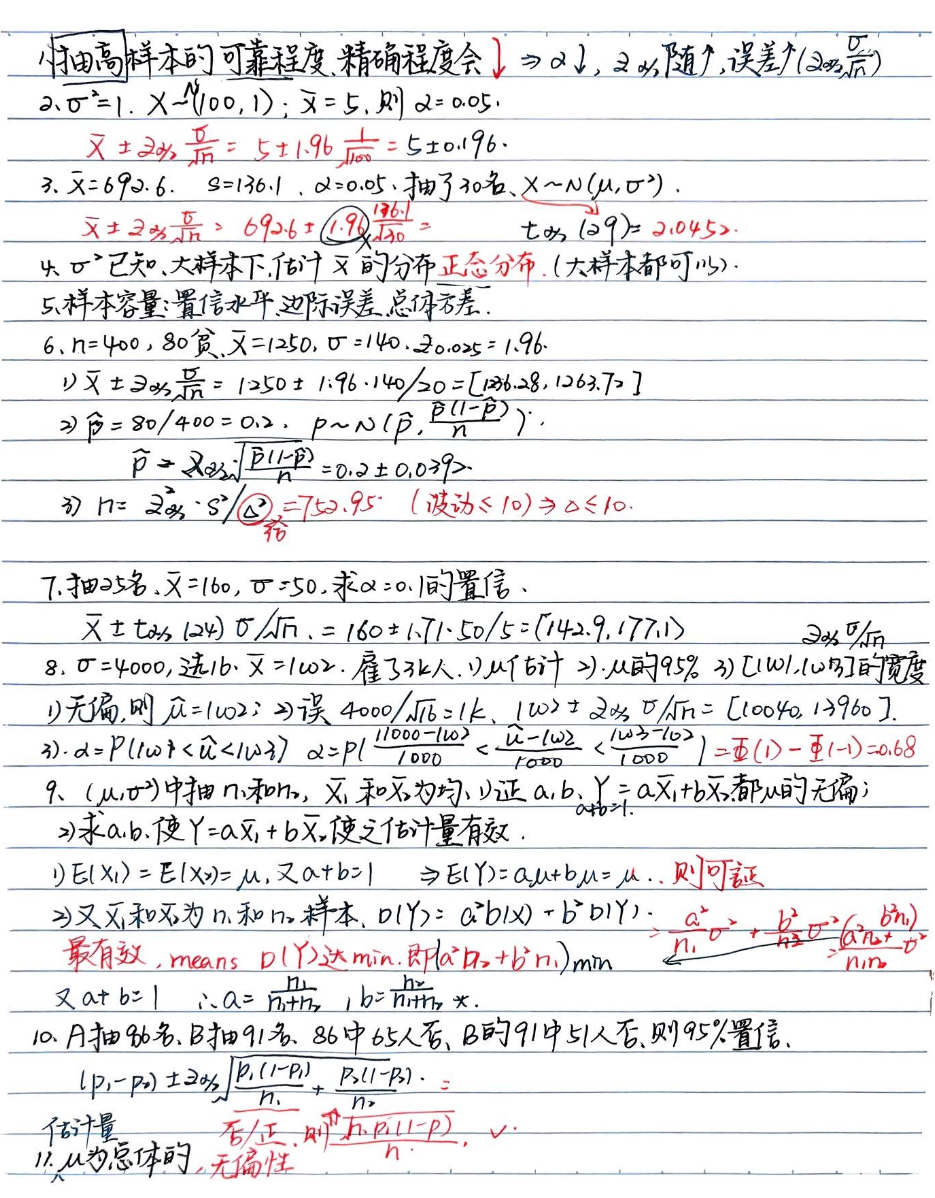 1、抽高样本的可靠程度、精确程度会↓ ⇒ α↓, z_{α/2}随↑, 误差↑(z_{α/2}σ/√n)
2、σ²=1. X~N(100,1); x̄=5, 则 α=0.05.
x̄ ± z_{α/2} σ/√n = 5±1.96 1/√100 = 5±0.196.
3. x̄=692.6. s=136.1、α=0.05、抽了30名、X~N(μ,σ²).
x̄ ± z_{α/2} σ/√n = 692.6 ± 1.96 136.1/√30 = t_{α/2}(29)= 2.0452.
4、σ²已知、大样本下,估计x̄的分布正态分布.(大样本都可以).
5、样本容量:置信水平、边际误差、总体方差.
6、n=400, 80贫、x̄=1250, σ=140. z_{0.025}=1.96.
1) x̄ ± z_{α/2} σ/√n = 1250 ± 1.96·140/20 = [1236.28, 1263.72]
2) p̂ = 80/400 = 0.2. p~N(p̂, p̂(1-p̂)/n).
p̂ ± z_{α/2}·√(p̂(1-p̂)/n) = 0.2 ± 0.0392.
3) n= z²_{α/2}·s²/Δ² =752.95 (波动≤10)⇒Δ≤10.
给
7、抽25名、x̄=160, σ=50, 求α=0.1的置信、
x̄ ± t_{α/2}(24) σ/√n、= 160±1.71·50/5 = (142.9, 177.1)
z_{α/2} σ/√n
8、σ=4000, 选16. x̄=1w2. 雇了3k人. 1) μ估计 2) μ的95% 3) [1w1, 1w3]的宽度
1) 无偏, 则 μ̂=1w2; 2) 误 4000/√16=1k、1w2 ± z_{α/2} σ/√n = [10040, 13960].
3). α=P(1w1<μ̂<1w3) α=P( (11000-1w2)/1000 < (μ̂-1w2)/1000 < (1w3-1w2)/1000 ) =Φ(1)-Φ(-1)=0.68
9、(μ,σ²)中抽n₁和n₂, x̄₁和x̄₂为均、1)证a,b、a+b=1. Y=ax̄₁+bx̄₂都μ的无偏;
2)求a,b、使Y=ax̄₁+bx̄₂使之估计量有效.
1) E(x₁)=E(x₂)=μ, 又a+b=1 ⇒E(Y)=aμ+bμ=μ.. 则可証
2)又x̄₁和x̄₂为n₁和n₂样本、D(Y)=a²D(X)+b²D(Y). = a²/n₁ σ² + b²/n₂ σ² = (a²n₂+b²n₁)/n₁n₂ σ²
最有效, means D(Y)达min. 即(a²n₂+b²n₁)min
又a+b=1 ∴a= n₁/(n₁+n₂), b= n₂/(n₁+n₂) *.
10、A抽86名、B抽91名、86中65人否、B的91中51人否、则95%置信、
(p₁-p₂) ± z_{α/2}√(p₁(1-p₁)/n₁ + p₂(1-p₂)/n₂). =
估计量 否/正, 则√(n·p(1-p)/n). ✓.
11. μ为总体的, 无偏性